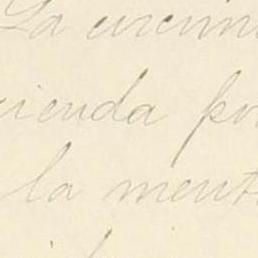 La circun
cienda po
la ment